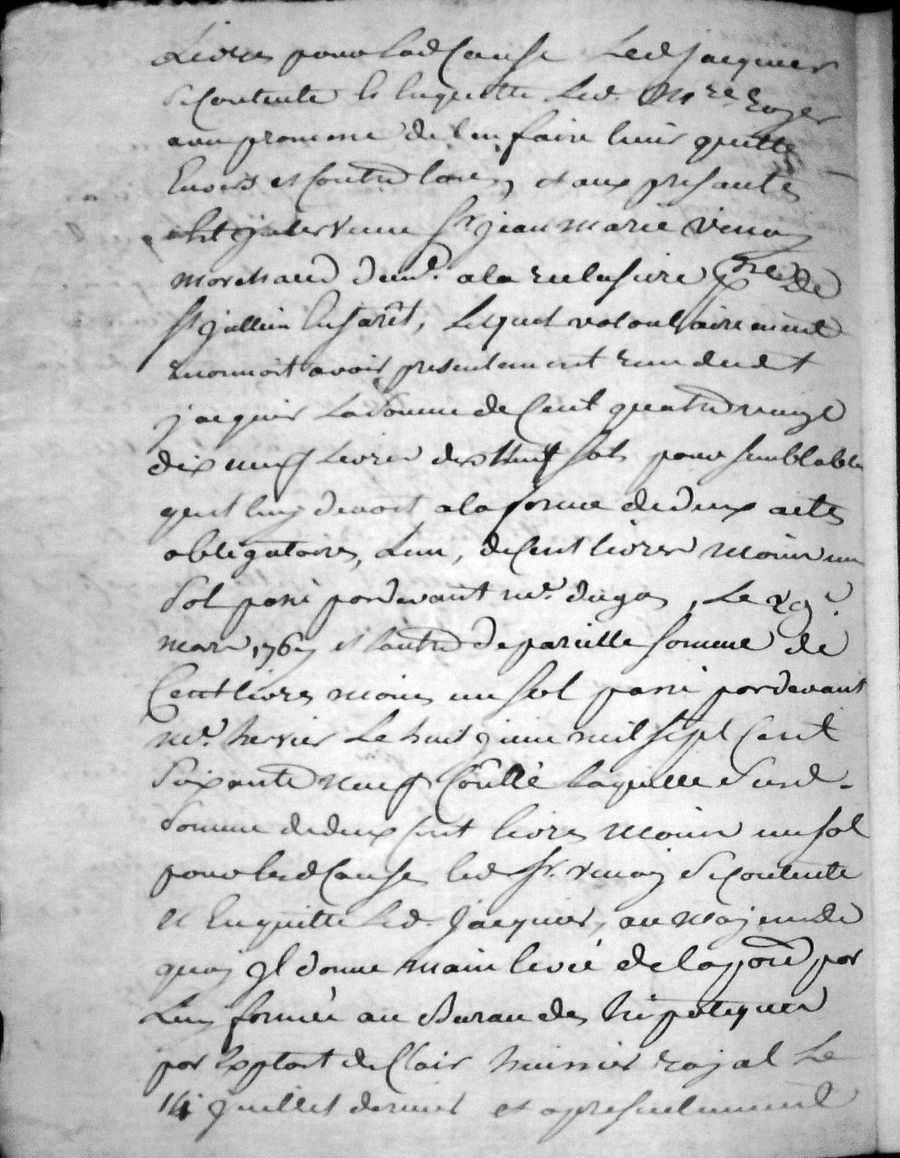 Livres pour lad Cause Led jacquier
Se Contente et lenquitte Led. Mre. Royer
avec promesse de l'en faire tenir quitte
Envers et Contre tous, et aux presantes
est intervenu Sr. jean marie vinay
marchand dem.t a la
St jullien, Lequel volontairement
reconnoit avoir presentement reçu dudt
jacquier La Somme de Cent quatre vingt
dix neuf Livres dix huit Sols pour semblable
qu'il luy devoit a la forme de deux actes
obligatoires, L'un, de Cent livres moins un
Sol passé pardevant me. dugas, Le 29e
mars 1767 et l'autre de pareille somme de
Cent livres moins un sol passé pardevant
me. hervier Le huit juin mil sept Cent
Soixante neuf laquelle Susd
Somme de deux Cent livres moins un sol
pour lesd Causes led Sr. vinay Se Contente
et Enquitte Led. Jacquier, au moyen de
quoy Il donne main levée de l'oppon par
Luy formée au Bureau des hipoteques
par Exploit de Clair huissier royal Le
14 juillet dernier et a presentement